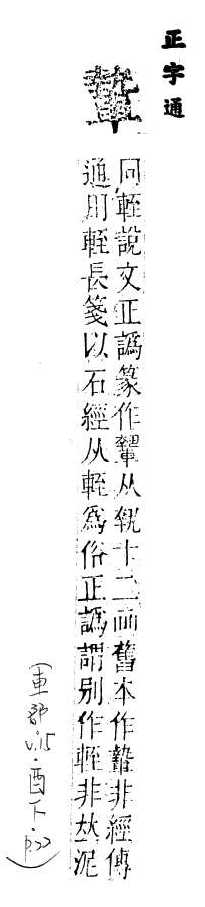 正字通
同輊說文正譌篆作从十二画舊本作非經傳
通用輊長箋以石經从輊爲俗正譌謂別作輊非𠀤泥
(車部 v.15・酉下・p.22)